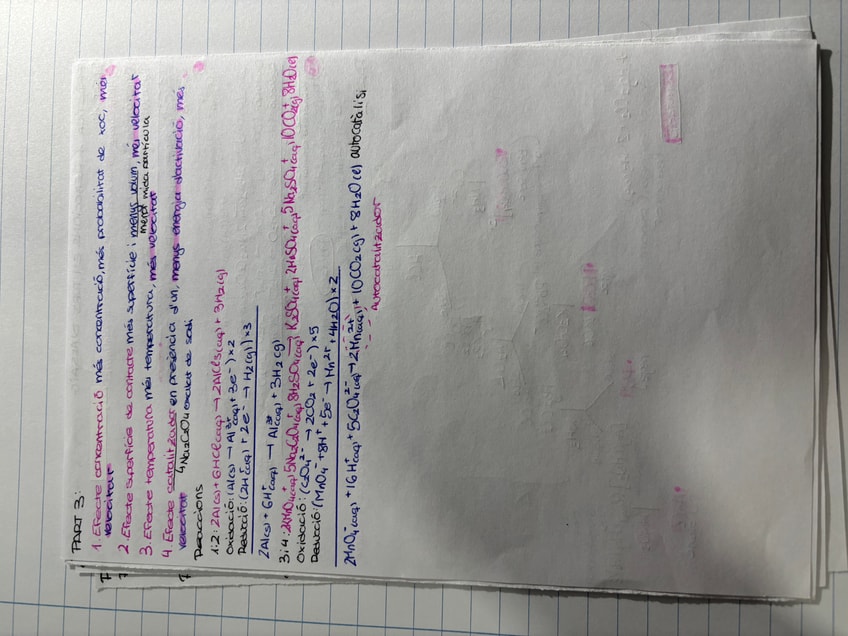 PART 3:
1. Efecte concentració més concentració, més probabilitat de xoc, més
velocitat
2. Efecte superfície de contacte més superfície i menys volum, més velocitat
menor mida partícula
3. Efecte temperatura més temperatura, més velocitat
4. Efecte catalitzador en presència d'un, menys energia d'activació, més
velocitat
4 Na2C2O4 oxalat de sodi
Reaccions
1:2: 2Al(s) + 6HCl(aq) → 2AlCl3(aq) + 3H2(g)
Oxidació: (Al(s) → Al3+(aq) + 3e-) × 2
Reducció: (2H+(aq) + 2e- → H2(g)) × 3
2Al(s) + 6H+(aq) → Al3+(aq) + 3H2(g)
3:4: 2KMnO4(aq) + 5Na2C2O4(aq) + 8H2SO4(aq) → K2SO4 + 2MnSO4(aq) + 5Na2SO4(aq) + 10CO2(g) + 8H2O(l)
Oxidació: (C2O4 2- → 2CO2 + 2e-) × 5
Reducció: (MnO4- + 8H+ + 5e- → Mn2+ + 4H2O) × 2
2MnO4-(aq) + 16H+(aq) + 5C2O4 2-(aq) → 2Mn2+(aq) + 10CO2(g) + 8H2O(l) autocatàlisi
Autocatalitzador